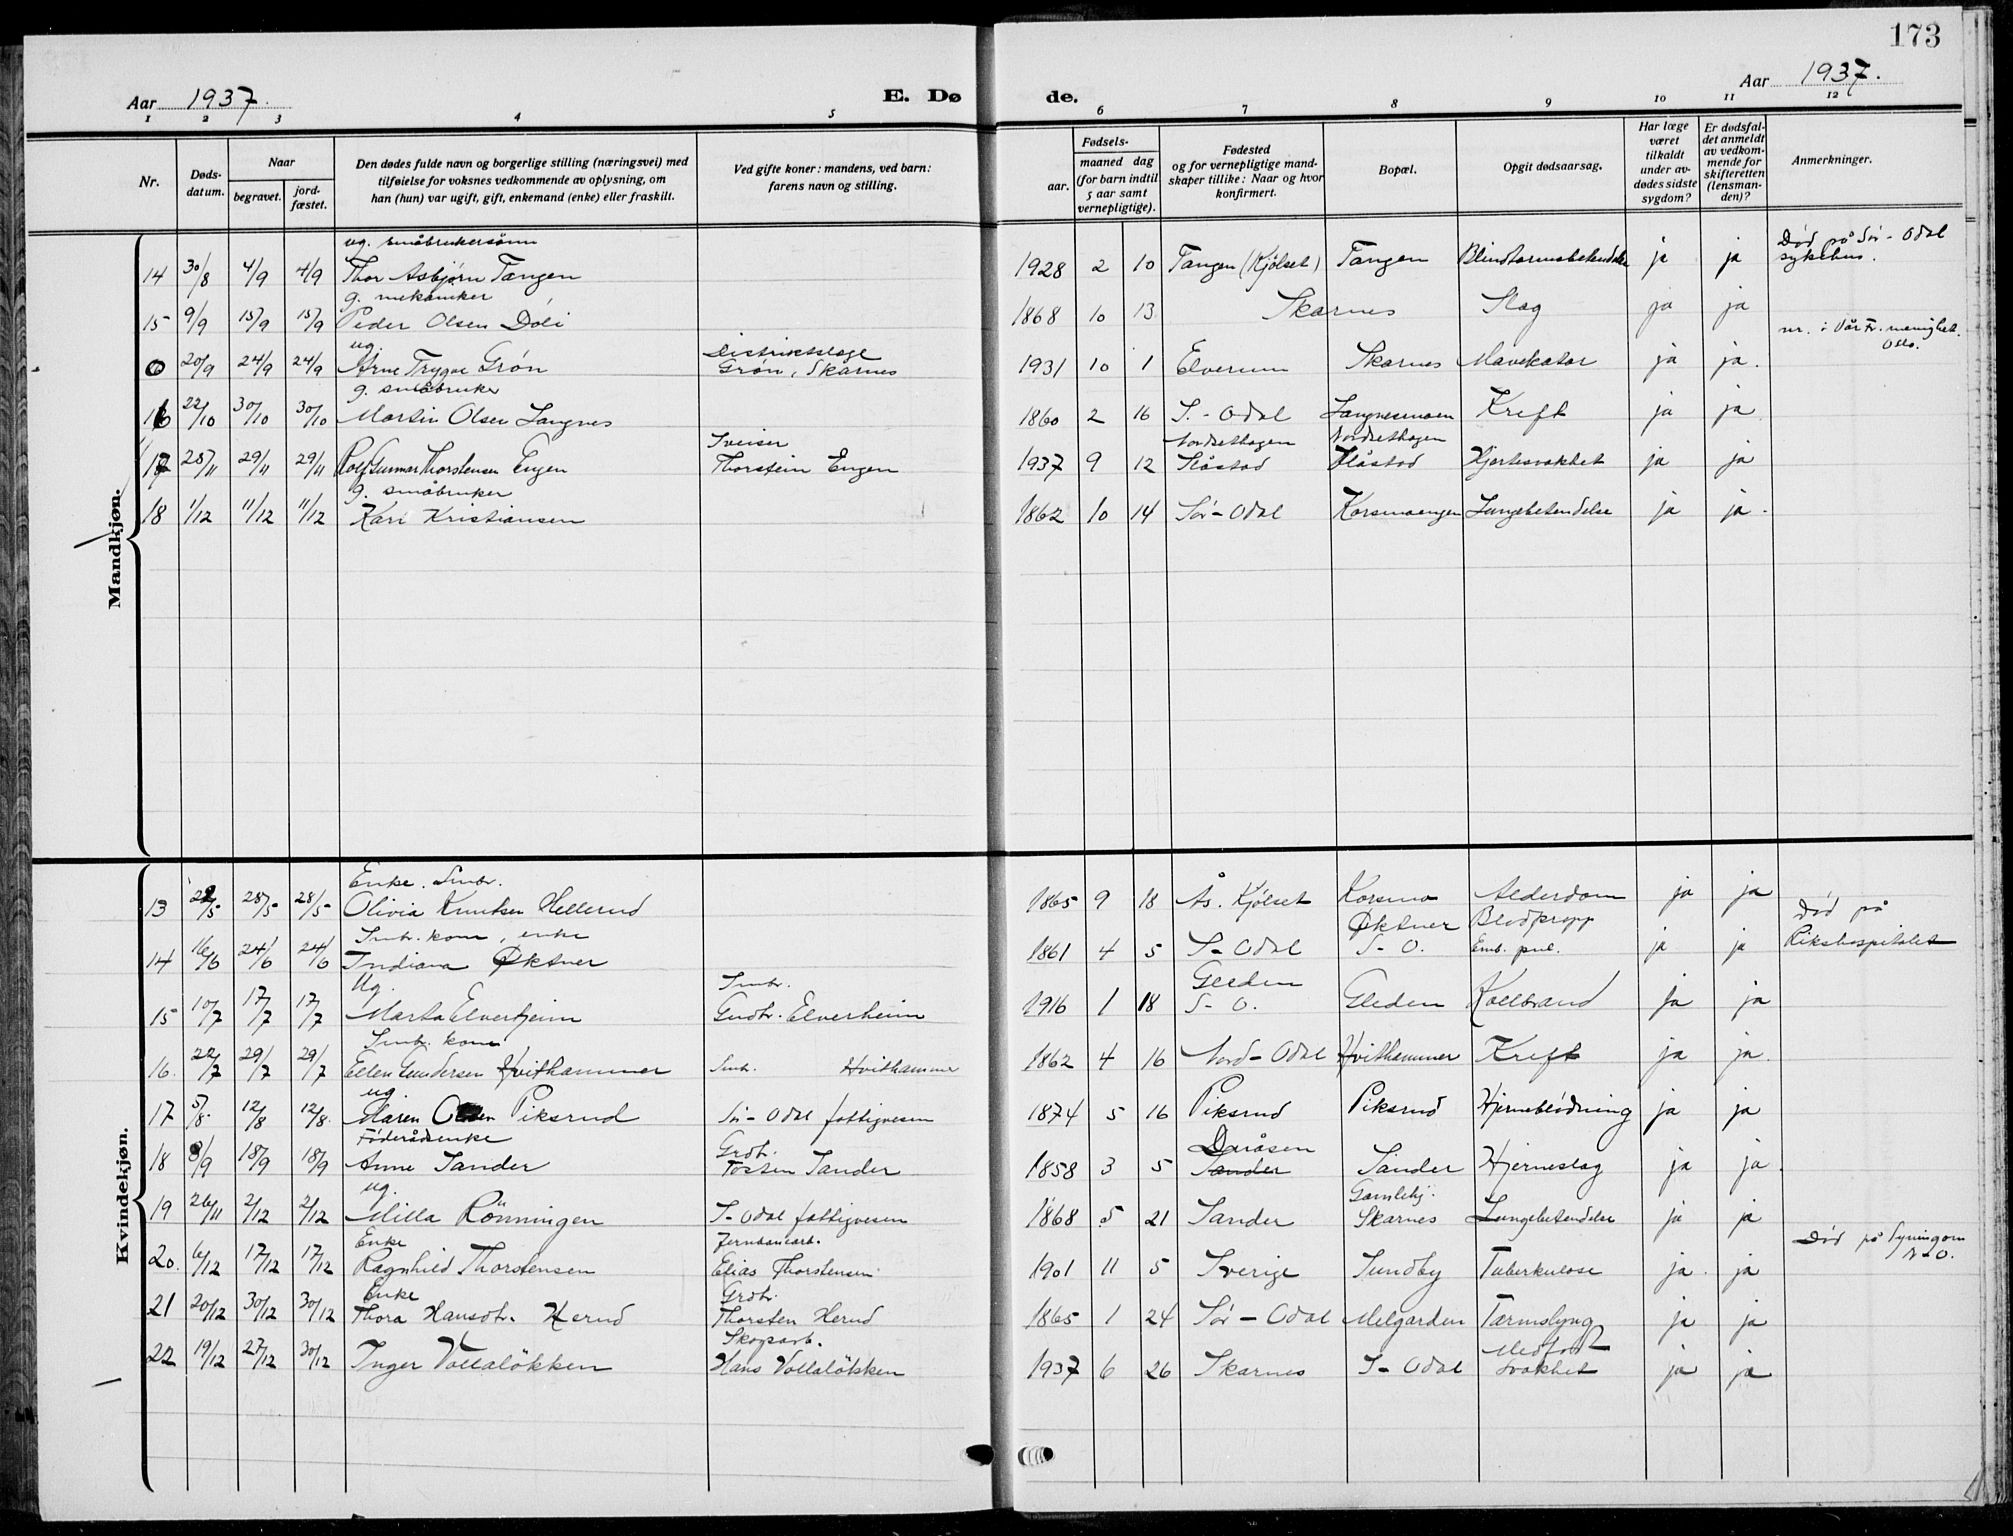 173
Aar 1937.
E. Dø
de.
Aar 1937.
1 2 3 4 5 6 7 8 9 10 11 12
Nr.
Døds-
datum.
Naar
begravet.
jord-
fæstet.
Den dødes fulde navn og borgerlige stilling (næringsvei) med
tilføielse for voksnes vedkommende av oplysning, om
han (hun) var ugift, gift, enkemand (enke) eller fraskilt.
Ved gifte koner: mandens, ved barn:
farens navn og stilling.
Fødsels-
aar.
maaned dag
(for barn indtil
5 aar samt
vernepligtige).
Fødested
og for vernepligtige mand-
skaper tillike: Naar og hvor
konfirmert.
Bopæl.
Opgit dødsaarsag.
Har læge
været
tilkaldt
under av-
dødes sidste
sygdom?
Er dødsfal-
det anmeldt
av vedkom-
mende for
skifteretten
(lensman-
den)?
Anmerkninger.
Mandkjøn.
ug. småbrukersønn
14 30/8 4/9 4/9 Thor Asbjørn Tangen 1928 2 10 Tangen (Kjølset) Tangen Blindtarmsbetendelse ja ja Død på Sør-Odal
sykehus.
g. mekaniker
15 9/9 15/9 15/9 Peder Olsen Døli 1868 10 13 Skarnes Slag ja ja
ug. Distriktslæge nr. i Vår Fr. menighet.
Oslo.
0 20/9 24/9 24/9 Arne Trygve Grøn Grøn, Skarnes 1931 10 1 Elverum Skarnes Mavekatar ja ja.
g. småbruker
16 22/10 30/10 30/10 Martin Olsen Langnes 1860 2 16 S.-Odal Langnesmoen Kreft ja ja
Sveiser Nordsethagen Nordsethagen
17 25/11 29/11 29/11 Rolf Gunnar Thorstensen Engen Thorstein Engen 1937 9 12 Slåstad Slåstad Hjertesvakhet ja ja
g. småbruker
18 1/12 11/12 11/12 Kari Kristiansen 1862 10 14 Sør-Odal Korsmoengen Lungebetendelse ja ja.
Kvindekjøn.
Enke. Smbr.
13 22/5 28/5 28/5 Olivia Knutsen Hellerud 1865 9 18 Ås. Kjølset Korsmo Alderdom ja ja
Smbr. kone, enke Øktner Blodpropp Død på
14 16/6 24/6 24/6 Indiana Øktner 1861 4 5 S-Odal S-O. Emb. pul. ja ja Rikshospitalet
Ug. Smbr. Gleden
15 10/7 17/7 17/7 Marta Elverheim Gudbr. Elverheim 1916 1 18 S-O. Gleden Koldbrand ja ja
Smbr. kone
16. 22/7 29/7 29/7 Ellen Gundersen Hvithammer Smbr. Hvithammer 1862 4 16 Nord-Odal Hvithammer Kreft ja ja.
ug.
17 5/8. 12/8 12/8. Maren Olsen Piksrud Sør-Odal fattigvesen 1874 5 16 Piksrud Piksrud Hjerneblødning ja ja
Føderådsenke Grdbr. Daråsen
18 8/9 18/9 18/9 Anne Sander Tosten Sander 1858 3 5 Sander Sander Hjerneslag ja ja.
ug. Gamlehj.
19 26/11 2/12 2/12 Milla Rönningen S-Odal fattigvesen 1868 5 21 Sander Skarnes Lungebetendelse ja ja
Enke Jernbanearb. Død på
20. 6/12 17/12 17/12 Ragnhild Thorstensen Elias Thorstensen 1901 11 5 Sverige Sundby Tuberkulose ja. ja N-O.
Enke Grdbr.
21 20/12 30/12 30/12 Thora Hansdtr. Herud Thorsten Herud 1865 1 24 Sør-Odal Melgarden Tarmslyng ja ja
Skogsarb. Medfødt
22 19/12 27/12 30/12 Inger Vollaløkken Hans Vollaløkken 1937 6 26 Skarnes S-Odal svakhet ja ja